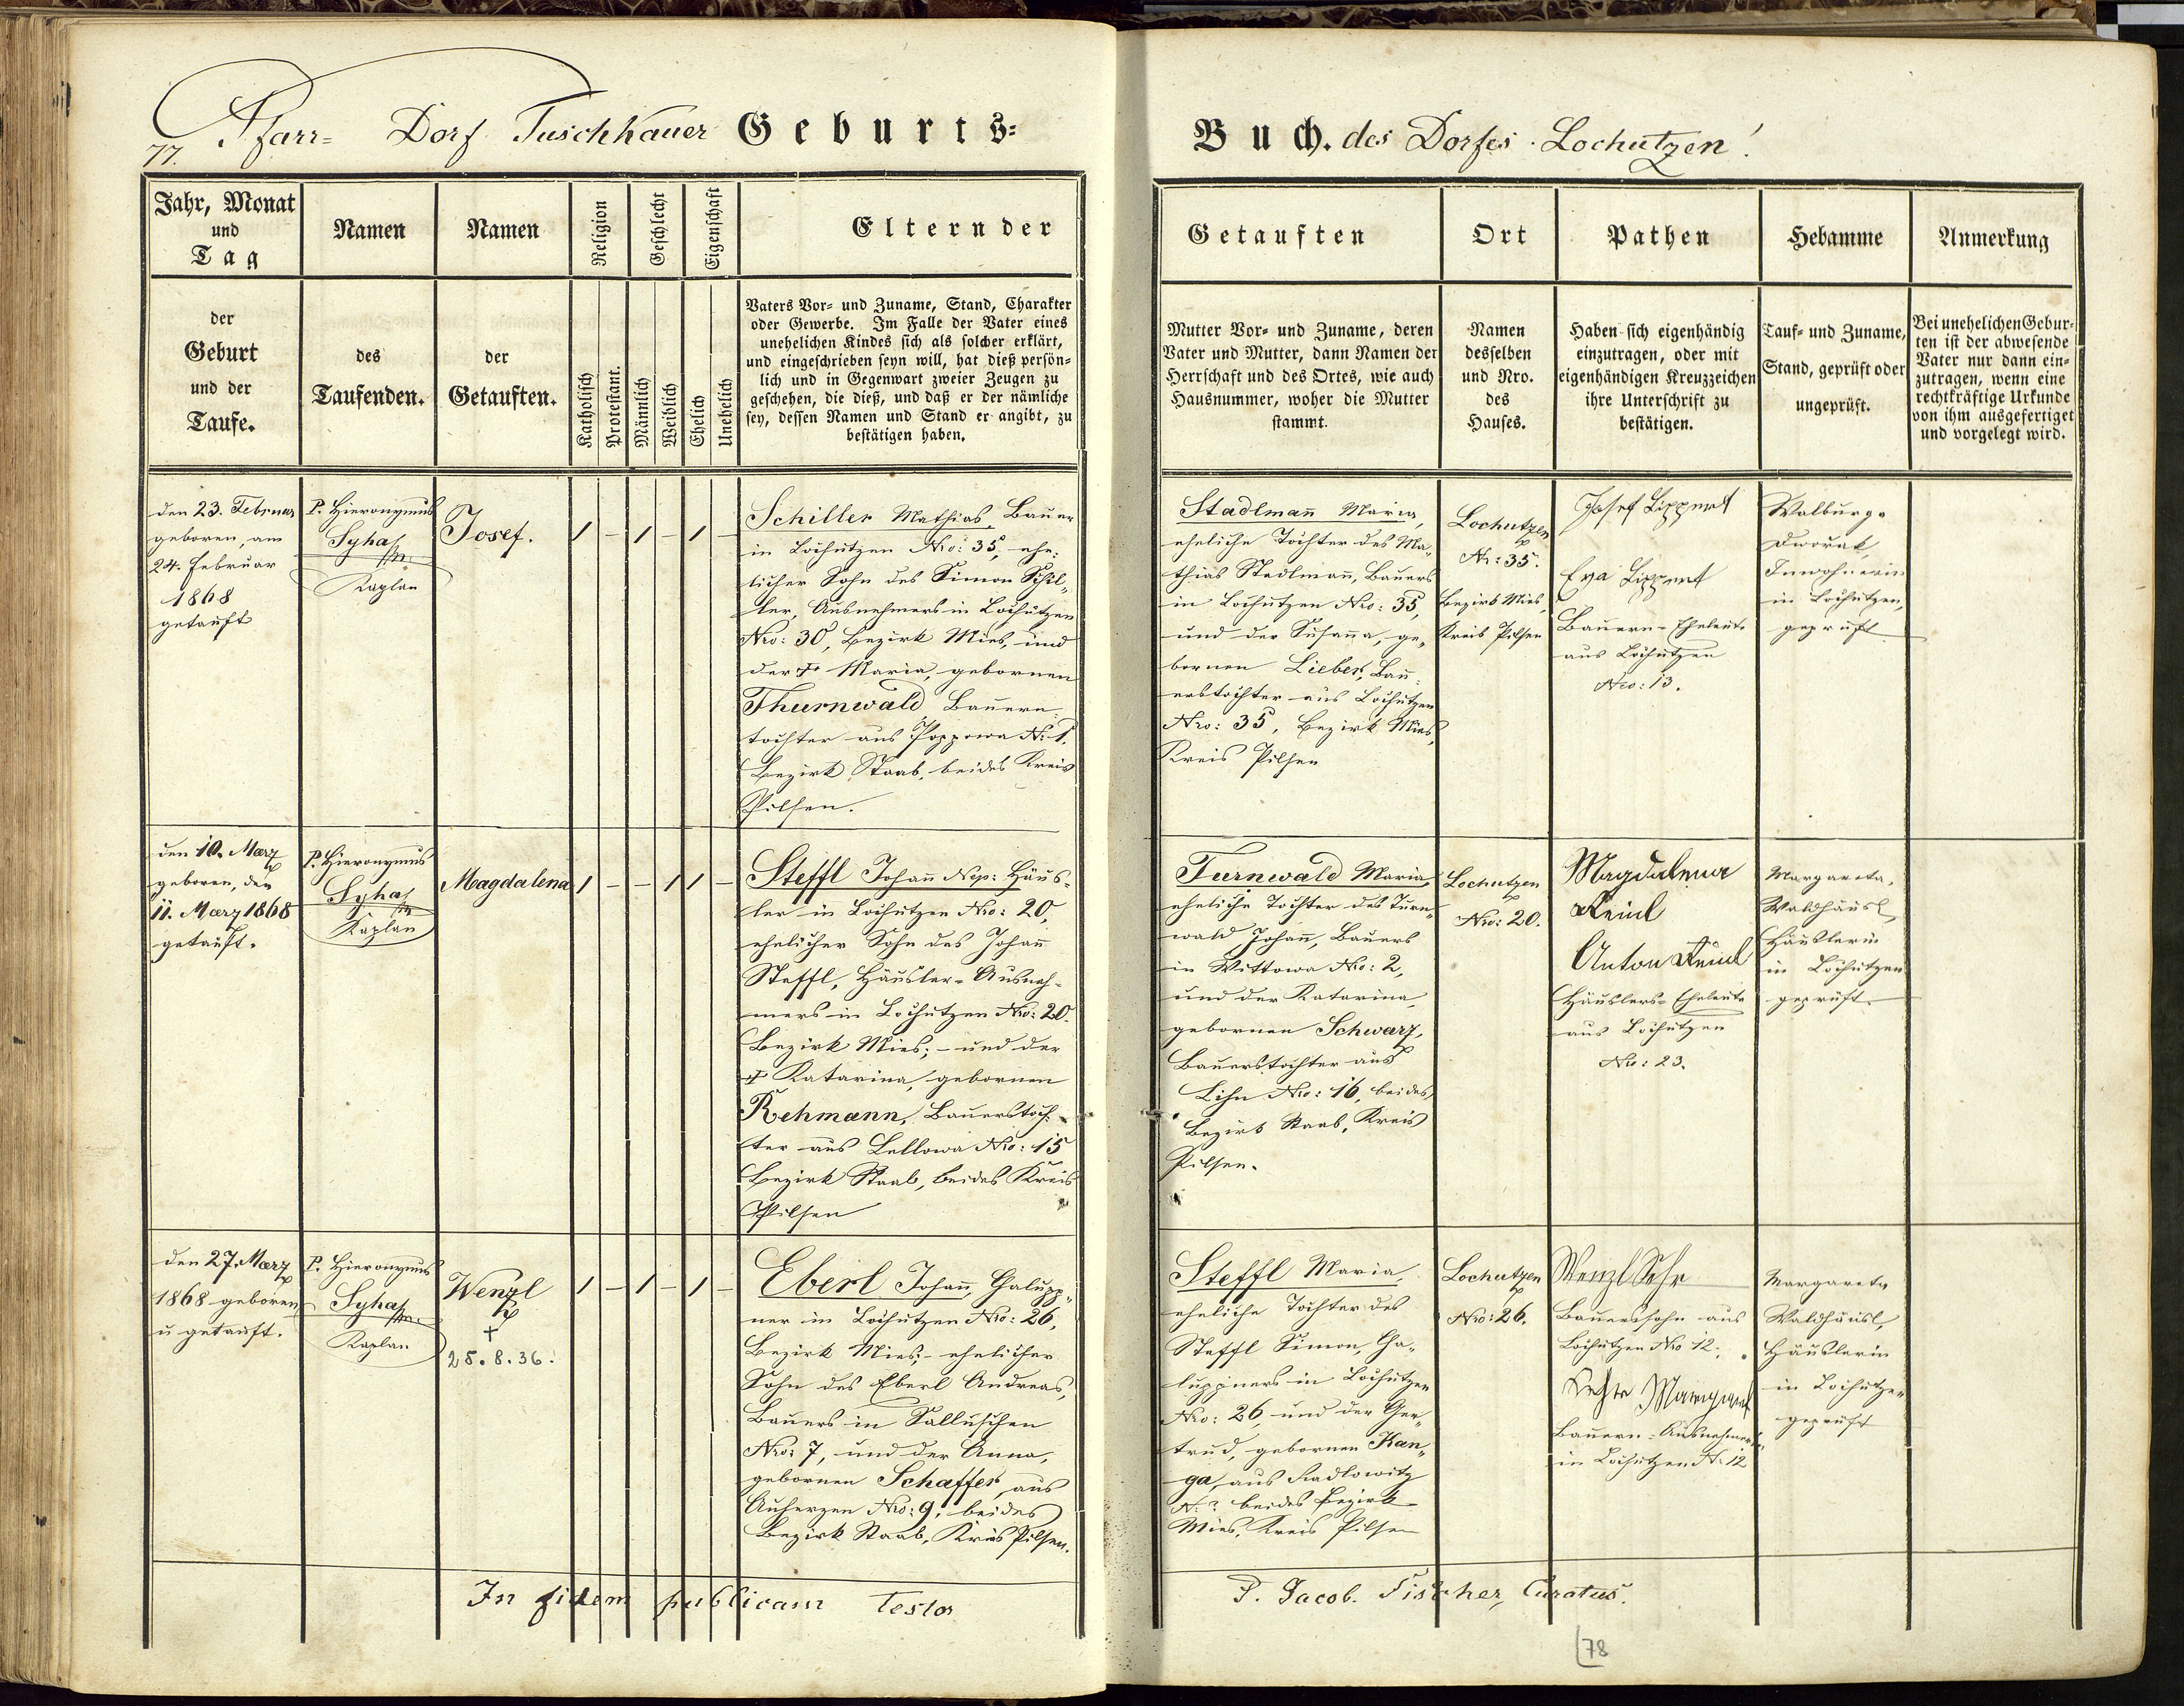 77.
Pfarr= Dorf Tuschkauer Geburts=
Jahr, Monat
und
Tag
Namen
Namen
Religion
Geschlecht
Eigenschaft
Eltern der
der
Geburt
und der
Taufe.
des
Taufenden.
der
Getauften.
Katholisch
Protestant.
Männlich
Weiblich
Ehelich
Unehelich
Vaters Vor= und Zuname, Stand, Charakter
oder Gewerbe. Im Falle der Vater eines
unehelichen Kindes sich als solcher erklärt,
und eingeschrieben seyn will, hat dieß persön=
lich und in Gegenwart zweier Zeugen zu
geschehen, die dieß, und daß er der nämliche
sey, dessen Namen und Stand er angibt, zu
bestätigen haben.
den 23. Februar
geboren, am
24. Februar
1868
getauft
P. Hieronymus
Syha
Kaplan
Josef.
/ – / – / –
Schiller Mathias, Bauer
in Lochutzen Nro: 35, ehe=
licher Sohn des Simon Schil=
ler, Ausnehmers in Lochutzen
Nro: 30, Bezirk Mies, und
der † Maria, gebornen
Thurnwald Bauern
tochter aus Poppowa N: 1.
Bezirk Staab, beides Kreis
Pilsen.
den 10. Maerz
geboren, den
11. Maerz 1868
getauft.
P. Hieronymus
Syha
Kaplan
Magdalena
/ – – / / –
Steffl Johann Nep: Häus=
ler in Lochutzen Nro: 20,
ehelicher Sohn des Johann
Steffl, Häusler=Ausneh=
mers in Lochutzen Nro: 20.
Bezirk Mies; – und der
† Katarina, gebornen
Rehmann, Bauerstoch=
ter aus Lellowa Nro: 15
Bezirk Staab, beides Kreis
Pilsen
den 27. Maerz
1868 geboren
u getauft.
P. Hieronymus
Syha
Kaplan
Wenzl
†
25.8.36.
/ – / – / –
Eberl Johann, Chalupp=
ner in Lochutzen Nro: 26,
Bezirk Mies; – ehelicher
Sohn des Eberl Andreas,
Bauers in Salluschen
Nro: 7, und der Anna,
gebornen Schaffer, aus
Auherzen Nro: 9, beides
Bezirk Staab, Kreis Pilsen.
In fidem publicam testor
Buch. des Dorfes Lochutzen!
Getauften
Ort
Pathen
Hebamme
Anmerkung
Mutter Vor= und Zuname, deren
Vater und Mutter, dann Namen der
Herrschaft und des Ortes, wie auch
Hausnummer, woher die Mutter
stammt.
Namen
desselben
und Nro.
des
Hauses.
Haben sich eigenhändig
einzutragen, oder mit
eigenhändigen Kreuzzeichen
ihre Unterschrift zu
bestätigen.
Tauf= und Zuname,
Stand, geprüft oder
ungeprüft.
Bei unehelichen Gebur=
ten ist der abwesende
Vater nur dann ein=
zutragen, wenn eine
rechtkräftige Urkunde
von ihm ausgefertiget
und vorgelegt wird.
Stadlmann Maria,
eheliche Tochter des Ma=
thias Stadlmann, Bauers
in Lochutzen Nro: 35,
und der Susanna, ge=
bornen Lieber, Bau=
erstochter aus Lochutzen
Nro: 35, Bezirk Mies,
Kreis Pilsen
Lochutzen
N: 35.
Bezirk Mies,
Kreis Pilsen
Josef Lippert
Eva Lippert
Bauern=Eheleute
aus Lochutzen
Nro: 13.
Walburga
Dworak,
Inwohnerin
in Lochutzen,
geprüft
Turnwald Maria,
eheliche Tochter des Turn=
wald Johann, Bauers
in Wittowa Nro: 2,
und der Katarina,
gebornen Schwarz,
Bauerstochter aus
Lihn Nro: 16, beides
Bezirk Staab, Kreis
Pilsen.
Lochutzen
Nro: 20.
Magdalena
Keinl
Anton Keinl
Häuslers=Eheleute
aus Lochutzen
Nro: 23.
Margareta
Waldhäusl,
Häuslerin
in Lochutzen
geprüft.
Steffl Maria,
eheliche Tochter des
Steffl Simon, Cha=
luppners in Lochutzen
Nro: 26, und der Ger=
trud, gebornen Kan=
ga, aus Radlowitz
N: ? beides Bezirk
Mies, Kreis Pilsen
Lochutzen
Nro: 26.
Wenzl
Bauerssohn aus
Lochutzen Nro 12.
Bauern=Ausnehmer
in Lochutzen N: 12
Margareta
Waldhäusl,
Häuslerin
in Lochutzen
geprüft
P. Jacob. Fischer, Curatus.
78